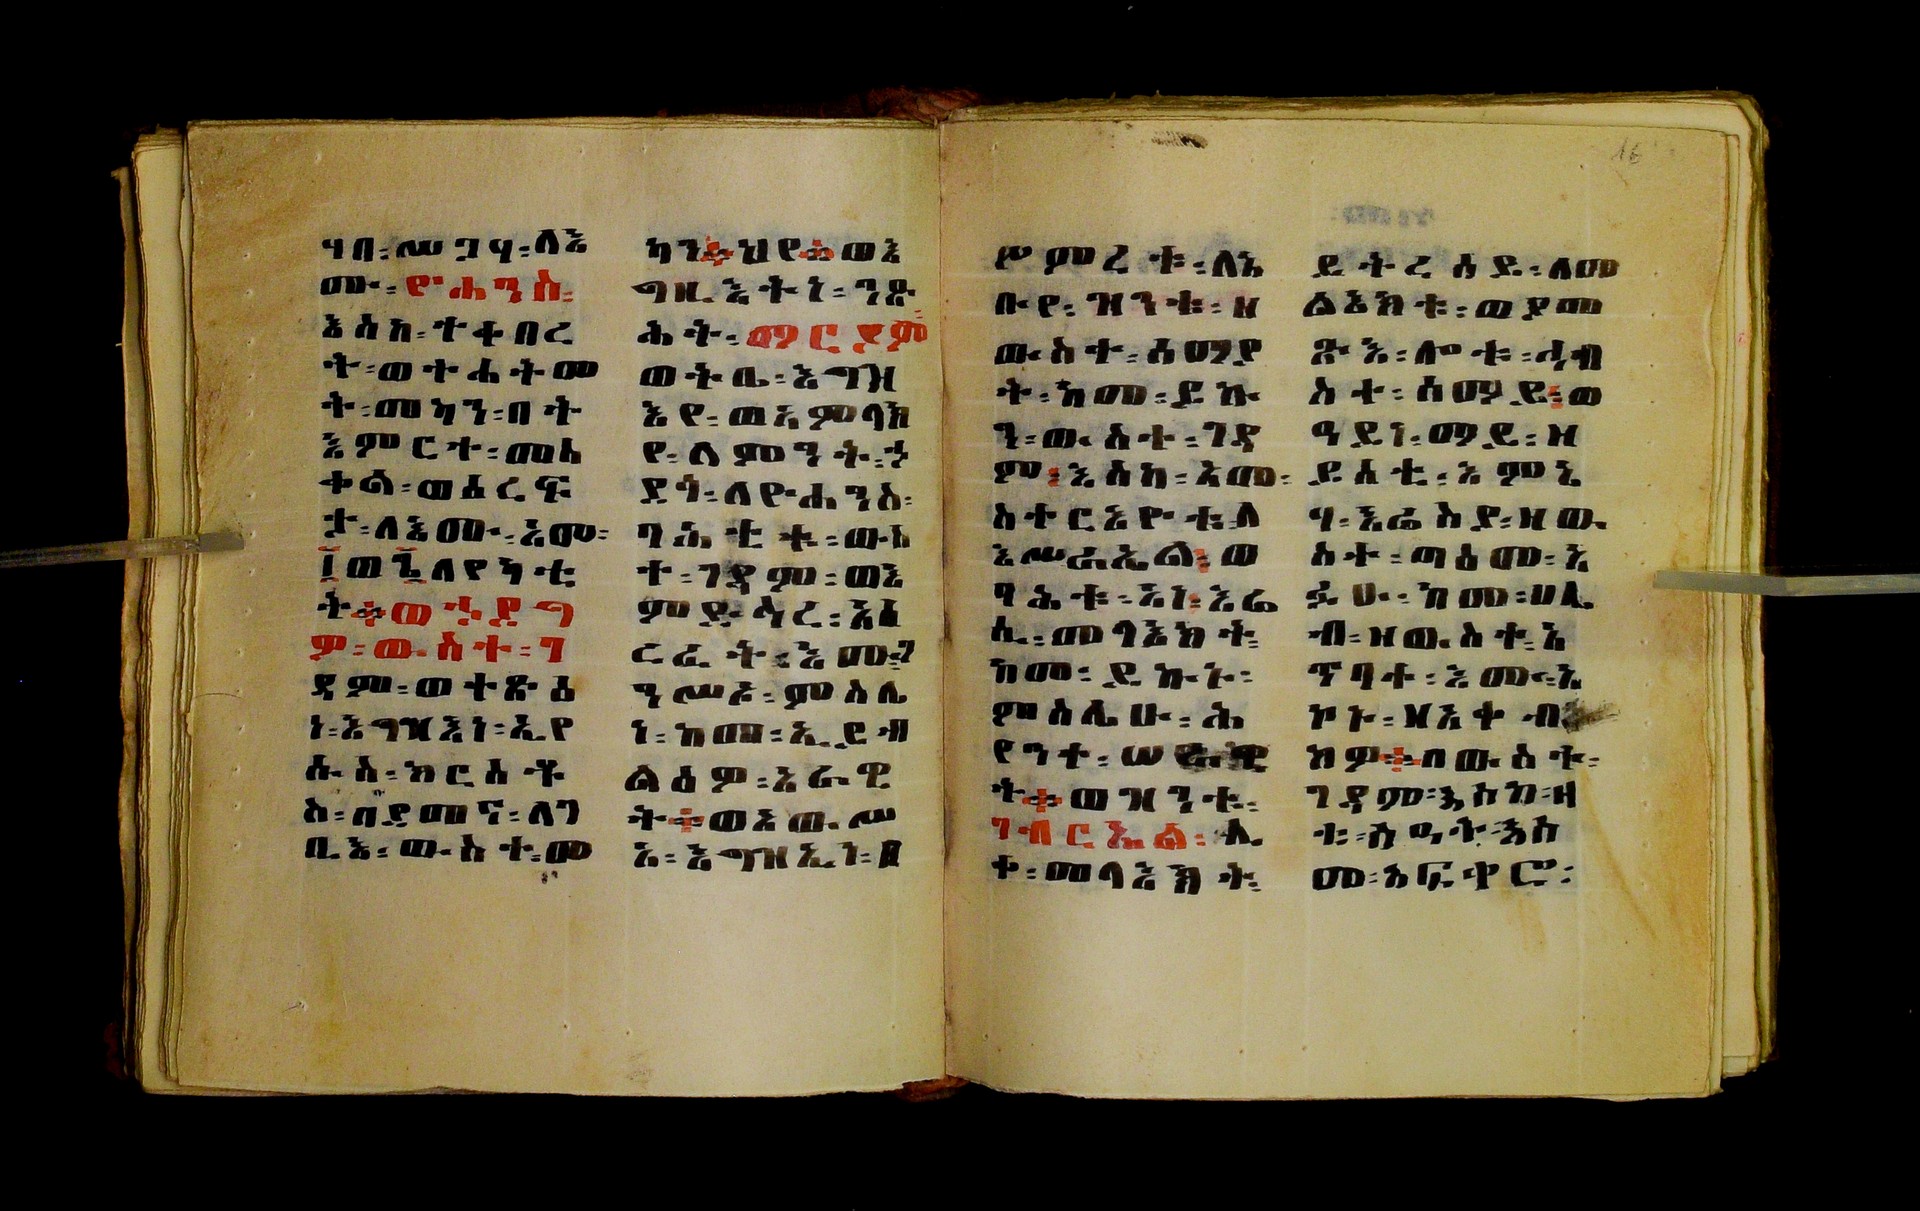 ሃበ፡ሡጋሃ፡ለእ
ሙ፡ዮሐንስ፡
እስከ፡ተቀበረ
ት፡ወተሐትመ
ት፡መካን፡በት
እምርተ፡መስ
ቀል፡ወዕረፍ
ታ፡ለእሙ፡እሙ፡
ለየካቲ
ት፨ወኃደግ
ዎ፡ውስተ፡ገ
ዳም፡ወተጽዕ
ነ፡እግዝእነ፡ኢየ
ሱስ፡ክርስቶ
ስ፡በደመና፡ለገ
ቢእ፡ውስተ፡መ
ካን፨ህየ፨ወእ
ግዚእትነ፡ንጽ
ሕት፡ማርያም
ወትቤ፡እግዝ
እየ፡ወአምላክ
የ፡ለምንት፡ኃ
ደጎ፡ለዮሐንስ፡
ባሕቲቱ፡ውስ
ተ፡ገዳም፡ወእ
ምድኃረ፡እለ
ርፈት፡እሙ፡
ንሥአ፡ምስሌ
ነ፡ከመ፡ኢይብ
ልዕዎ፡አራዊ
ት፨ወአውሥ
አ፡እግዝኢነ፡
ሥምረቱ፡ለአ
ቡየ፡ዝንቱ፡ዘ
ውስተ፡ሰማያ
ት፡ከመ፡ይኩ
ን፡ውስተ፡ገዳ
ም፡እስከ፡አመ፡
አስተርእዮቱ፡ለ
እሥራኤል፡ወ
ባሕቱ፡እነ፡እሬ
ሲ፡መላእክት፡
ከመ፡ይኩኑ፡
ምስሌሁ፡ሕ
የንተ፡
ት፨ወዝንቱ፡
ገብርኤል፡ሊ
ቀ፡መላእክት፡
ይትረሰይ፡ለመ
ልእክቱ፡ወያመ
ጽእ፡ሎቱ፡ኅብ
ስተ፡ሰማይ፡ወ
ዓይነ፡ማይ፡ዘ
ይሰቲ፡እምኔ
ሃ፡እሬስያ፡ዘው
ስተ፡ጣዕመ፡እ
ዴሁ፡ከመ፡ሀሊ
ብ፡ዘውስተ፡አ
ጥባተ፡እሙ፡እ
ኮኑ፡ዘእቀብ
ክዎ፨በውስተ፡
ገዳም፡እስከ፡ዘ
መ፡አፍቀሮ፡